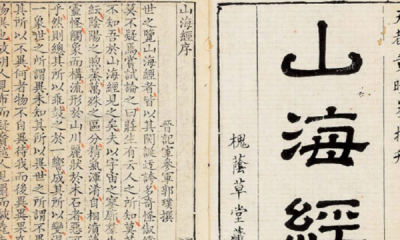 山海經
槐蔭草堂藏
山海經序
晉記室參軍郭璞撰
世之覽山海經者皆以其閎誕迂誇多奇怪俶儻
莫不疑焉嘗試論之曰莊生有云人之所知莫
不知吾於山海經見之矣夫以宇宙之寥廓羣
紜陰陽之煦蒸萬殊之區分精氣渾淆自相濆
靈怪觸象而構流形於山川麗狀於木石者惡可
乎然則總其所以乖鼓之於一響成其所以變混
一象世之所謂異未知其所以異世之所謂不異
其所以不異何者物不自異待我而後異異果
物異也故胡人見布而疑黂越人見罽而駭